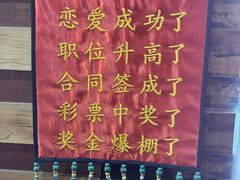 恋爱成功了
职位升高了
合同签成了
彩票中奖了
奖金爆棚了